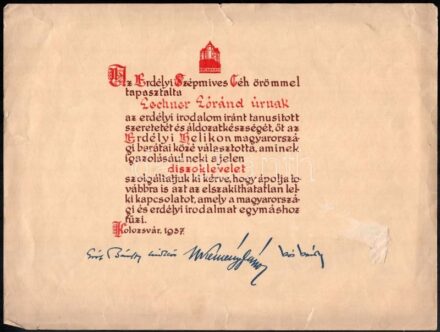 Az Erdélyi Szépmives Céh örömmel
tapasztalta
Lechner Lóránd úrnak
az erdélyi irodalom iránt tanusitott
szeretetét és áldozatkészségét, őt az
Erdélyi Helikon magyarorszá-
gi barátai közé választotta, aminek
igazolásául neki a jelen
diszoklevelet
szolgáltatjuk ki kérve, hogy ápolja to-
vábbra is azt az elszakithatatlan lel-
ki kapcsolatot, amely a magyarorszá-
gi és erdélyi irodalmat egymáshoz
fűzi.
Kolozsvár, 1937.
Gróf Bánffy Miklós Kemény János Kós Károly